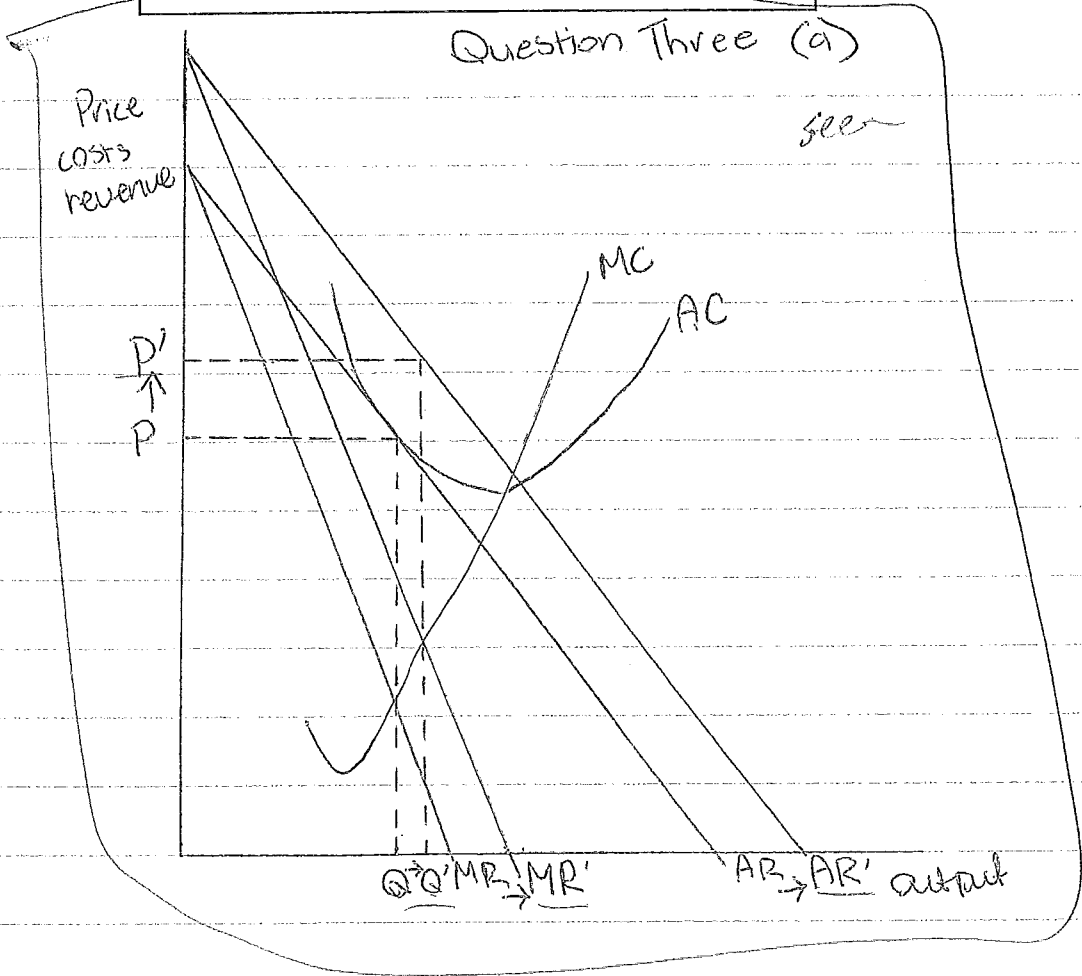 Question Three (a)
seen
Price
costs
revenue
MC
AC
P'
↑
P
Q → Q' MR → MR' AR → AR' output